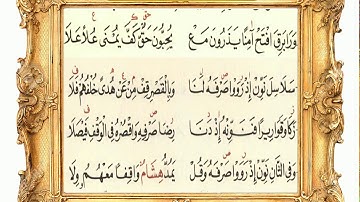 وَرَا بَرَقَ افْتَحْ آمِنًا يَذَرُونَ مَعْ يُحِبُّونَ حَقٌّ كَفَّ يُمْنَى عُلًا عَلَا
سَلَاسِلَ نَوِّنْ إِذْ رَوَوْا صَرْفَهُ لَنَا وَبِالْقَصْرِ قِفْ مِنْ عَنْ هُدًى خُلْفُهُمْ فَلَا
زَكَا وَقَوَارِيرًا فَنَوِّنْهُ إِذْ دَنَا رِضَا صَرْفِهِ وَاقْصُرْهُ فِي الْوَقْفِ فَيْصَلَا
وَفِي الثَّانِ نَوِّنْ إِذْ رَوَوْا صَرْفَهُ وَقُلْ يَمُدُّ هِشَامٌ وَاقِفًا مَعَهُمْ وِلَا